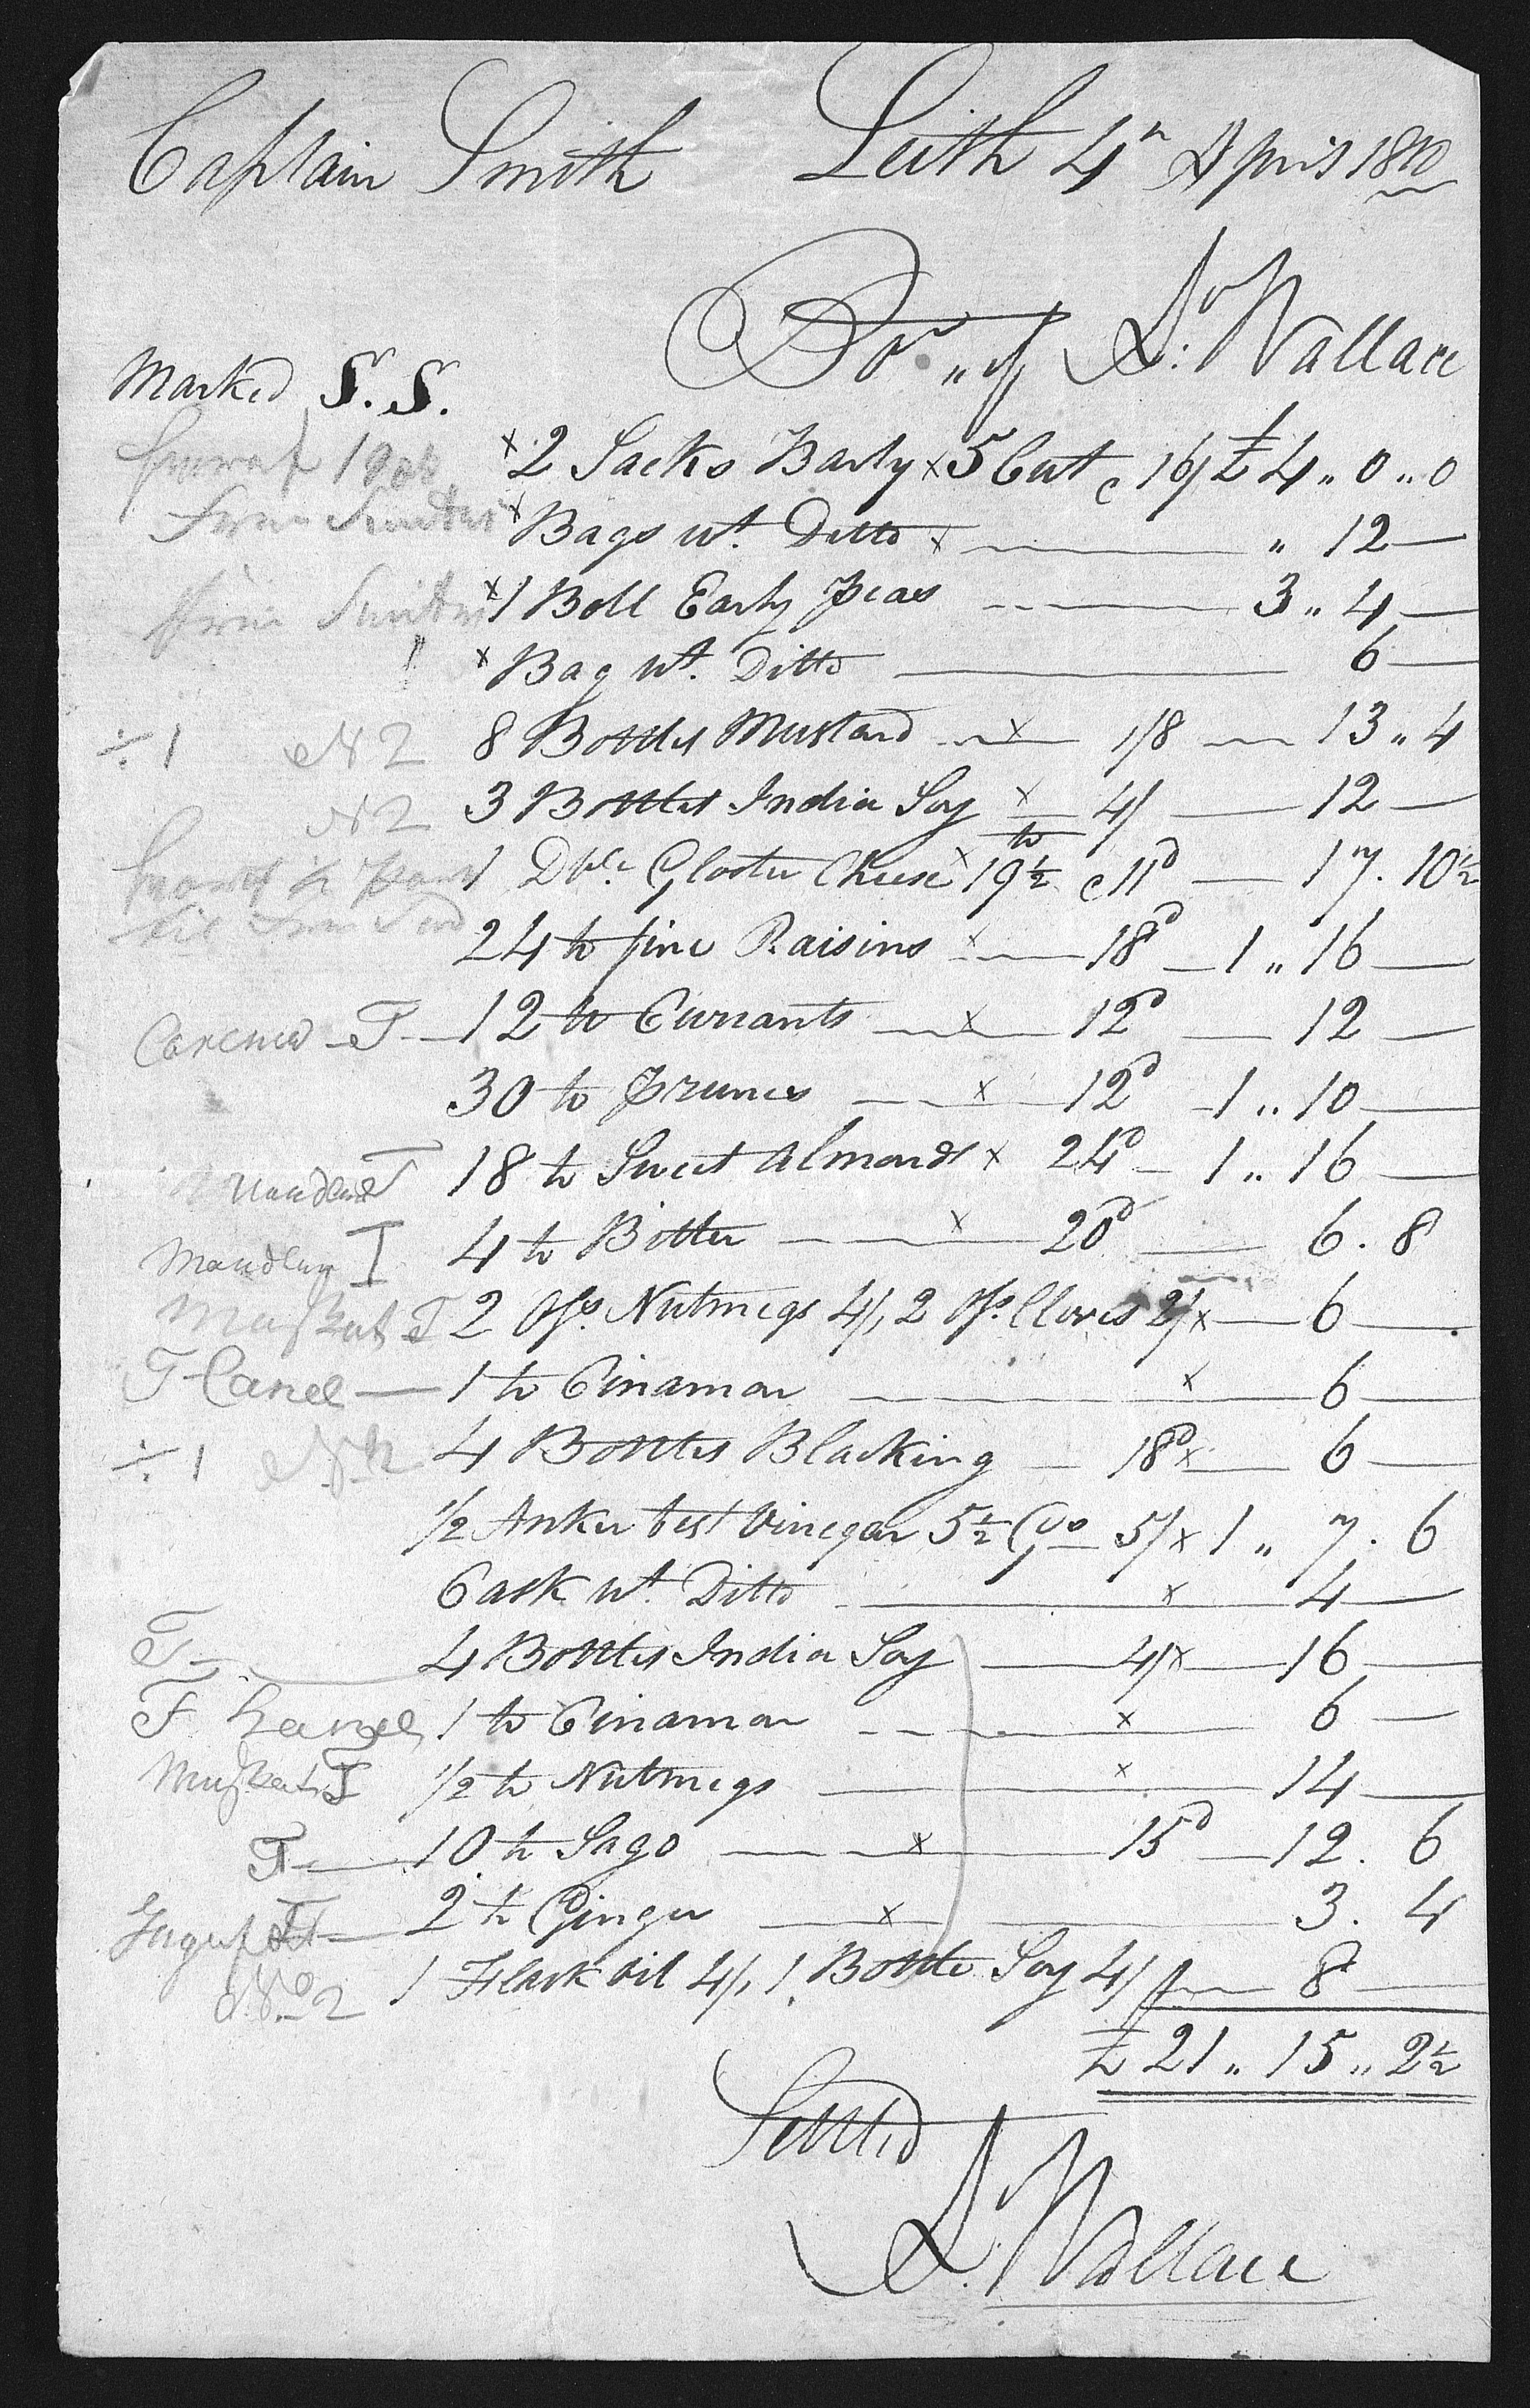 Captain Smith Leith 4th April 1810
Bot. of A: Wallace
Marked S.S.
x 2 Sacks Barly x 5 Cwt @ 16/ £ 4 " 0 " 0
x Bags wt. Ditto x — " 12 —
x 1 Boll Early Peas — 3 " 4 —
x Bag wt. Ditto — 6 —
÷ 1 N 2 8 Bottles Mustard — x — 1/8 — 13 " 4
N 2 3 Bottles India Soy x 4/ — 12 —
1 Dble. Gloster Cheese x 19½ lb @ 11d — 17 . 10½
24 lb fine Raisins x — 18d — 1 " 16 —
T — 12 lb Currants — x — 12d — 12 —
30 lb Prunes — x — 12d — 1 " 10 —
T 18 lb Sweet Almonds x 24d — 1 " 16 —
T 4 lb Bitter — x — 20d — 6 . 8
Muskat T 2 Ozs. Nutmegs 4/, 2 Ozs. Cloves 2/ x — 6 —
T Canel — 1 lb Cinamon — x — 6 —
÷ 1 4 Bottles Blacking — 18d x — 6 —
½ Anker best Vinegar 5½ Gs 5/ x 1 " 7 . 6
Cask wt. Ditto — x — 4 —
T — 4 Bottles India Soy — 4/ x — 16 —
T Canel 1 lb Cinamon — x — 6 —
Muskat T ½ lb Nutmegs — x — 14 —
T — 10 lb Sago — x — 15d — 12 . 6
T — 2 lb Ginger — x — 3 . 4
No 2 1 Flask oil 4/, 1 Bottle Soy 4/ — 8 —
£ 21 " 15 " 2½
Settled
A. Wallace